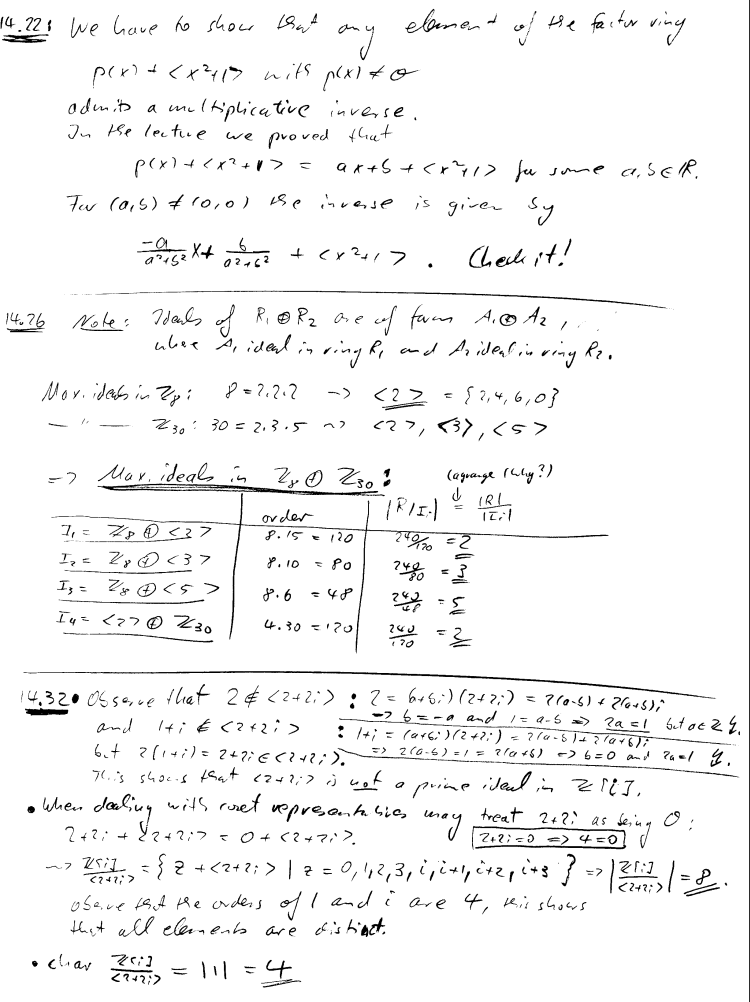 14.22: We have to show that any element of the factor ring
p(x) + <x²+1> with p(x) ≠ 0
admits a multiplicative inverse.
In the lecture we proved that
p(x) + <x²+1> = ax+b + <x²+1> for some a,b∈ℝ.
For (a,b) ≠ (0,0) the inverse is given by
-a/(a²+b²) x + b/(a²+b²) + <x²+1>. Check it!
14.26 Note: Ideals of R₁⊕R₂ are of form A₁⊕A₂,
where A₁ ideal in ring R₁ and A₂ ideal in ring R₂.
Max. ideals in ℤ₈: 8=2.2.2 -> <2> = {2,4,6,0}
— " — ℤ₃₀: 30=2.3.5 ~> <2>, <3>, <5>
=> Max. ideals in ℤ₈⊕ℤ₃₀: Lagrange (Why?)
order |R/Iᵢ| ↓= |R|/|Iᵢ|
I₁ = ℤ₈⊕<2> 8.15 = 120 240/120 = 2
I₂ = ℤ₈⊕<3> 8.10 = 80 240/80 = 3
I₃ = ℤ₈⊕<5> 8.6 = 48 240/48 = 5
I₄ = <2>⊕ℤ₃₀ 4.30 = 120 240/120 = 2
14.32• Observe that 2∉<2+2i> : 2 = (a+bi)(2+2i) = 2(a-b)+2(a+b)i
=> b=-a and 1=a-b => 2a=1 but a∈ℤ ↯.
and 1+i ∉ <2+2i> : 1+i = (a+bi)(2+2i) = 2(a-b)+2(a+b)i
but 2(1+i) = 2+2i ∈ <2+2i>. => 2(a-b)=1=2(a+b) => b=0 and 2a=1 ↯.
This shows that <2+2i> is not a prime ideal in ℤ[i].
• When dealing with coset representatives may treat 2+2i as being 0:
2+2i + <2+2i> = 0 + <2+2i>. 2+2i=0 => 4=0
~> ℤ[i]/<2+2i> = {z + <2+2i> | z = 0,1,2,3,i,i+1,i+2,i+3} => |ℤ[i]/<2+2i>| = 8.
observe that the orders of 1 and i are 4, this shows
that all elements are distinct.
• char ℤ[i]/<2+2i> = |1| = 4